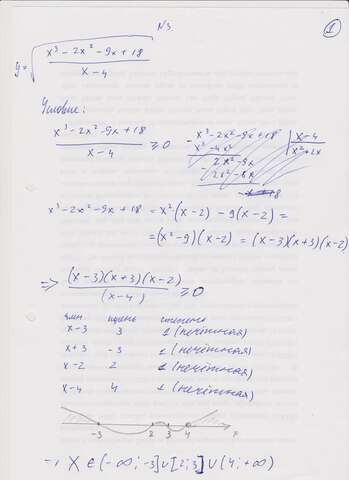 N3
1
y = √((x³ - 2x² - 9x + 18)/(x - 4))
Условие:
(x³ - 2x² - 9x + 18)/(x - 4) ≥ 0
x³ - 2x² - 9x + 18 | x - 4
x³ - 4x² | x² + 2x
2x² - 9x
2x² - 8x
- x + 18
x³ - 2x² - 9x + 18 = x²(x - 2) - 9(x - 2) =
= (x² - 9)(x - 2) = (x - 3)(x + 3)(x - 2)
=> ((x - 3)(x + 3)(x - 2))/(x - 4) ≥ 0
степень
x - 3 3 1 (нечётная)
x + 3 -3 1 (нечётная)
x - 2 2 1 (нечётная)
x - 4 4 1 (нечётная)
-3 2 3 4 x
X ∈ (-∞; -3] ∪ [2; 3] ∪ (4; +∞)